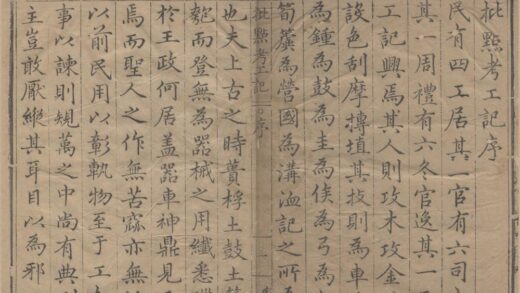 批點考工記序
民有四工居其一官有六司
其一周禮有六冬官逸其一
工記興焉其人則攻木攻金
設色刮摩摶埴其技則為車
為鍾為鼓為圭為侯為弓為
筍簴為營國為溝洫記之所
批點考工記 序
也夫上古之時蕢桴土鼓土
而登無為器械之用纖悉
於王政何居蓋器車神鼎見
焉而聖人之作無苦窳亦無
以前民用以彰軌物至于工
事以諫則規萬之中尚有典
主豈敢厭縱其耳目以為邪